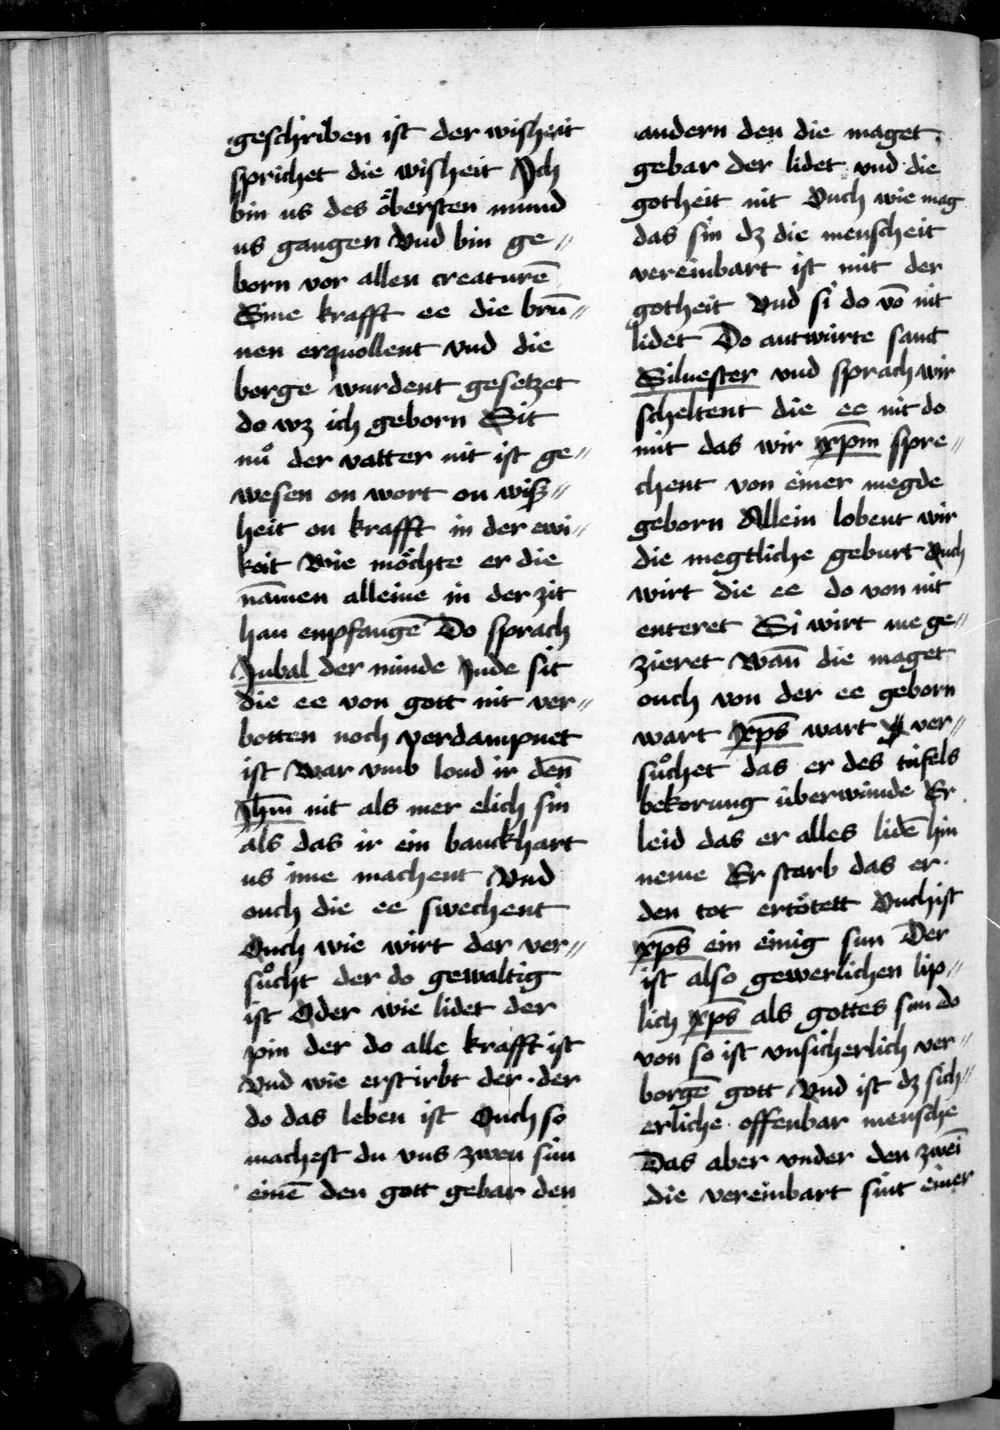 geschriben ist der wisheit
sprichet die wisheit Ich
bin us des öbersten mund
us gangen Vnd bin ge⸗
born vor allen creaturē
Sine krafft ee die brū⸗
nen erquollent vnd die
berge wurdent gesetzet
do wz ich geborn Sit
nuͦ der vatter nit ist ge⸗
wesen on wort on wiß⸗
heit on krafft in der ewi⸗
keit Wie möchte er die
nāmen alleine in der zit
han enpfangē Do sprach
Jubal der nünde Jude sit
die ee von gott nit ver⸗
botten noch verdampnet
ist War vmb lond ir denn̄
Jhm̄ nit als mer elich sin
als das ir ein banckhart
us ime machent Vnd
ouch die ee swechent
Ouch wie wirt der ver⸗
suͦcht der do gewaltig
ist Oder wie lidet der
pin der do alle krafft ist
Vnd wie erstirbt der der
do das leben ist Ouch so
machest du vns zwen sün
einē den gott gebar den
andern den die maget
gebar der lidet vnd die
gotheit nit Ouch wie mag
das sin dz die menscheit
vereinbart ist mit der
gotheit Vnd si do vō nit
lidet Do antwürte sant
Siluester vnd sprach wir
scheltent die ee nit do
mit das wir xp̄m spre⸗
chent von einer megde
geborn Allein lobent wir
die megtliche geburt Ouch
wirt die ee do von nit
enteret Si wirt me ge⸗
zieret Wan̄ die maget
ouch von der ee geborn
wart xp̄s wart ver⸗
suͦchet das er des tüfels
bekorung überwünde Er
leid das er alles lidē hin
neme Er starb das er
den tot ertötett Ouch ist
xp̄s ein einig sun Der
ist also gewerlichen lip⸗
lich xp̄s als gottes sun do
von so ist vnsicherlich ver⸗
borgē gott Vnd ist dz sich⸗
erliche offenbar mensche
Das aber vnder den zwei
die vereinbart sint einer